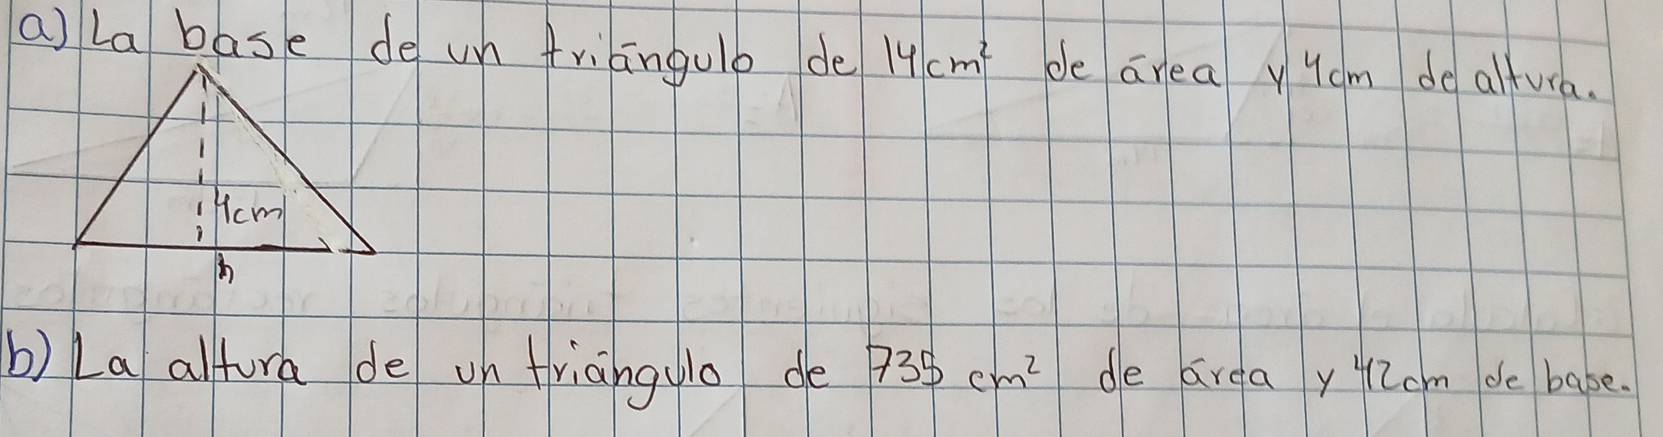 a) La base de un triángulo de 14cm² de área y 4cm de altura.
4cm
h
b) La altura de un triángulo de 735 cm² de área y 42cm de base.